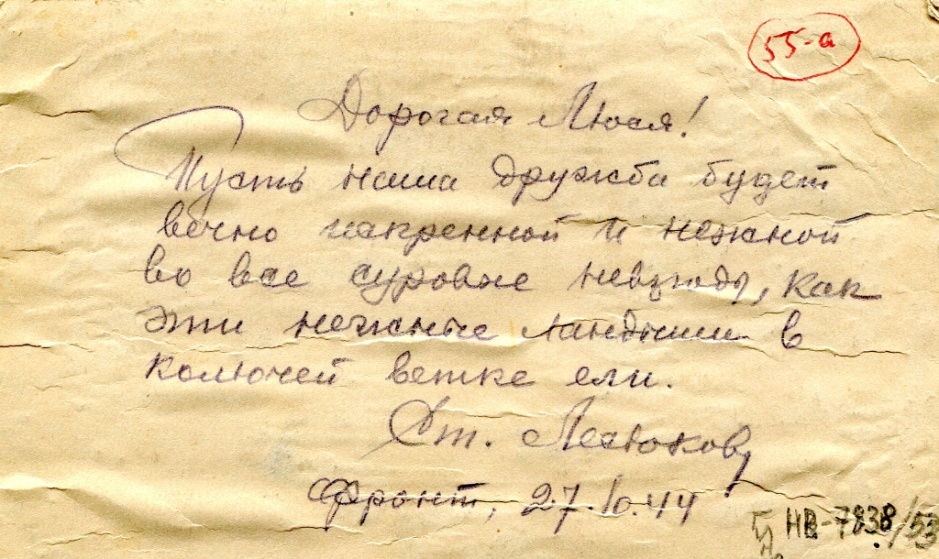 55-а
Дорогая Люся!
Пусть наша дружба будет
вечно искренной и нежной
во все суровые невзгоды, как
эти нежные ландыши в
колючей ветке ели.
Ст.
Фронт, 27.10.44
НВ-7838/53